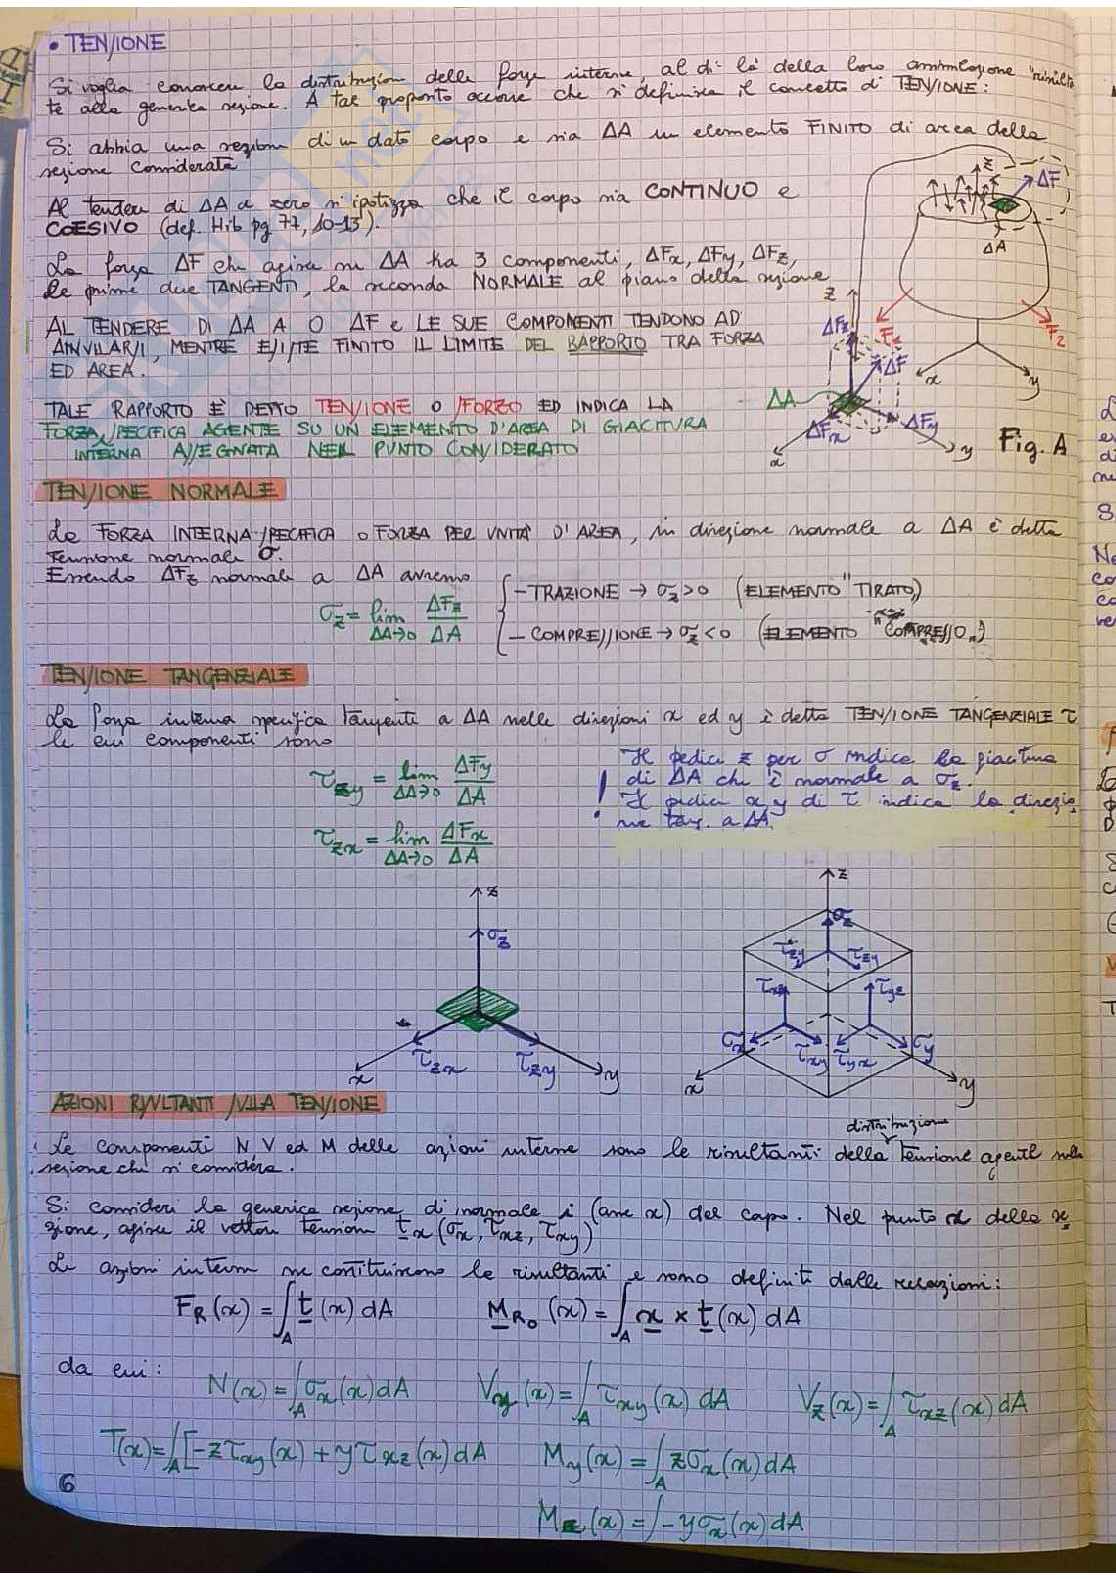 • TENSIONE
Si voglia conoscere la distribuzione delle forze interne, al di là della loro
te alla generica sezione. A tal proposito occorre che si definisca il concetto di TENSIONE:
Si abbia una sezione di un dato corpo e sia ΔA un elemento FINITO di area della
sezione considerata
Al tendere di ΔA a zero si ipotizza che il corpo sia CONTINUO e
COESIVO (def. Hib pg 77, 10-13).
La forza ΔF che agisce su ΔA ha 3 componenti, ΔFx, ΔFy, ΔFz,
le prime due TANGENTI, la seconda NORMALE al piano della sezione
AL TENDERE DI ΔA A 0 ΔF e LE SUE COMPONENTI TENDONO AD
ANNULARSI, MENTRE ESISTE FINITO IL LIMITE DEL RAPPORTO TRA FORZA
ED AREA.
TALE RAPPORTO E' DETTO TENSIONE O SFORZO ED INDICA LA
FORZA SPECIFICA AGENTE SU UN ELEMENTO D'AREA DI GIACITURA
INTERNA ASSEGNATA NEL PUNTO CONSIDERATO
z
ΔF
ΔA
F1
F2
x
y
z
ΔFz
ΔF
ΔA
ΔFx
ΔFy
x
y
Fig. A
TENSIONE NORMALE
La FORZA INTERNA SPECIFICA o FORZA PER UNITA' D'AREA, in direzione normale a ΔA è detta
Tensione normale σ.
Essendo ΔFz normale a ΔA avremo
σz = lim ΔA→0 ΔFz/ΔA
- TRAZIONE → σz>0 (ELEMENTO "TIRATO")
- COMPRESSIONE → σz<0 (ELEMENTO "COMPRESSO")
TENSIONE TANGENZIALE
La forza interna specifica tangente a ΔA nelle direzioni x ed y è detta TENSIONE TANGENZIALE τ
le cui componenti sono
τzy = lim ΔA→0 ΔFy/ΔA
τzx = lim ΔA→0 ΔFx/ΔA
! Il pedice z per σ indica la giacitura
di ΔA che è normale a σz.
Il pedice x y di τ indica la direzio
ne tang. a ΔA.
z
σz
τzx
τzy
x
y
z
σz
τzy
τzy
τxz
τyz
σx
τxy
τyx
σy
x
y
AZIONI RISULTANTI SULLA TENSIONE
distribuzione
Le componenti N, V ed M delle azioni interne sono le risultanti della tensione agente sulla
sezione che si considera.
Si consideri la generica sezione di normale i (asse x) del corpo. Nel punto x della se
zione, agisce il vettore tensione tx (σx, τxz, τxy)
Le azioni interne ne costituiscono le risultanti e sono definiti dalle relazioni:
FR(x) = ∫A t(x) dA
MRo(x) = ∫A x × t(x) dA
da cui:
N(x) = ∫A σx(x) dA
Vy(x) = ∫A τxy(x) dA
Vz(x) = ∫A τxz(x) dA
T(x) = ∫A [-zτxy(x) + yτxz(x) dA
My(x) = ∫A zσx(x) dA
Mz(x) = ∫-yσx(x) dA
6